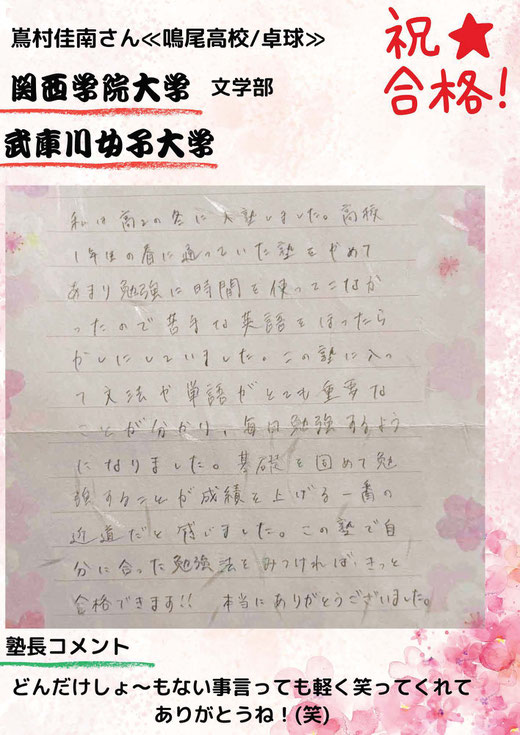 嶌村佳南さん≪鳴尾高校/卓球≫
祝★
合格!
関西学院大学 文学部
武庫川女子大学
私は高2の冬に入塾しました。高校
1年生の春に通っていた塾をやめて
あまり勉強に時間を使ってこなか
ったので苦手な英語をほったら
かしにしていました。この塾に入っ
て文法や単語がとても重要な
ことが分かり、毎日勉強するよう
になりました。基礎を固めて勉
強することが成績を上げる一番の
近道だと感じました。この塾で自
分に合った勉強法をみつければ、きっと
合格できます!! 本当にありがとうございました。
塾長コメント
どんだけしょ～もない事言っても軽く笑ってくれて
ありがとうね！(笑)